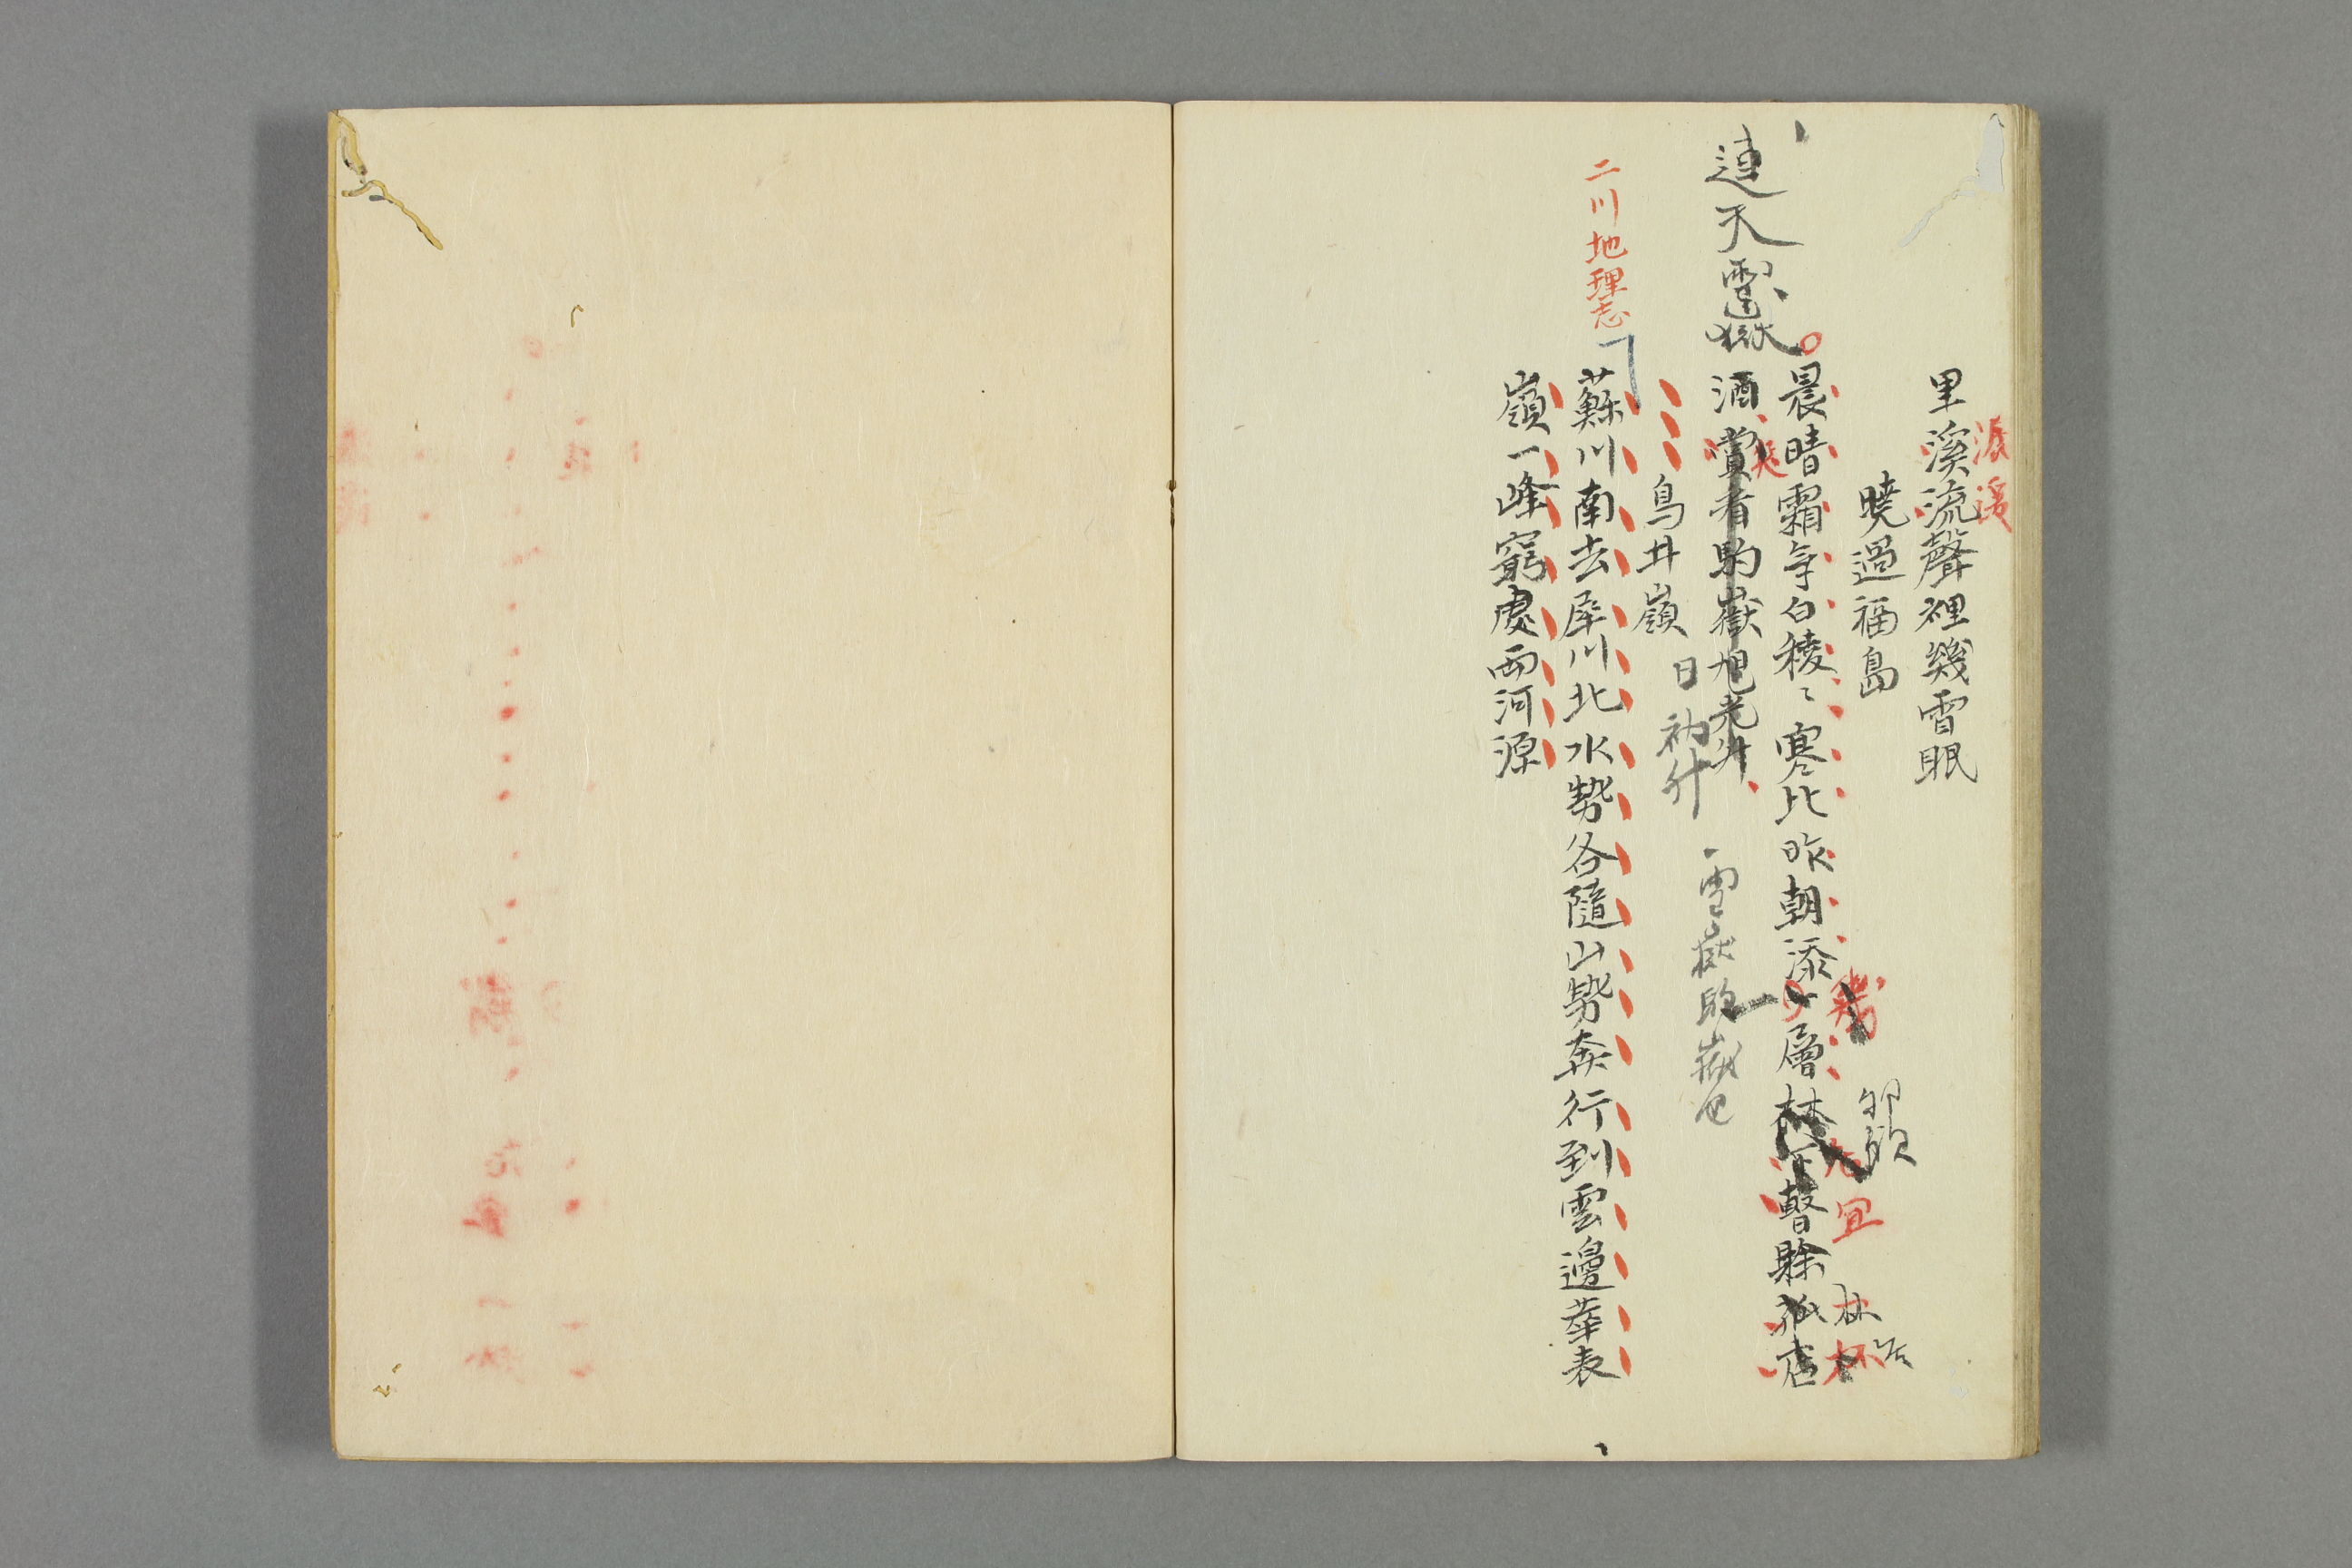 里溪流聲裡幾宵眠
曉過福島
晨晴霜気白稜〻寒比昨朝添一層林下暫賖孤店
酒賞看駒嶽旭光升
連天雪嶽
日初升
雪嶽
鳥井嶺
蘇川南去犀川北水勢各隨山勢奔行到雲邊華表
嶺一峰窮處両河源
二川地理志